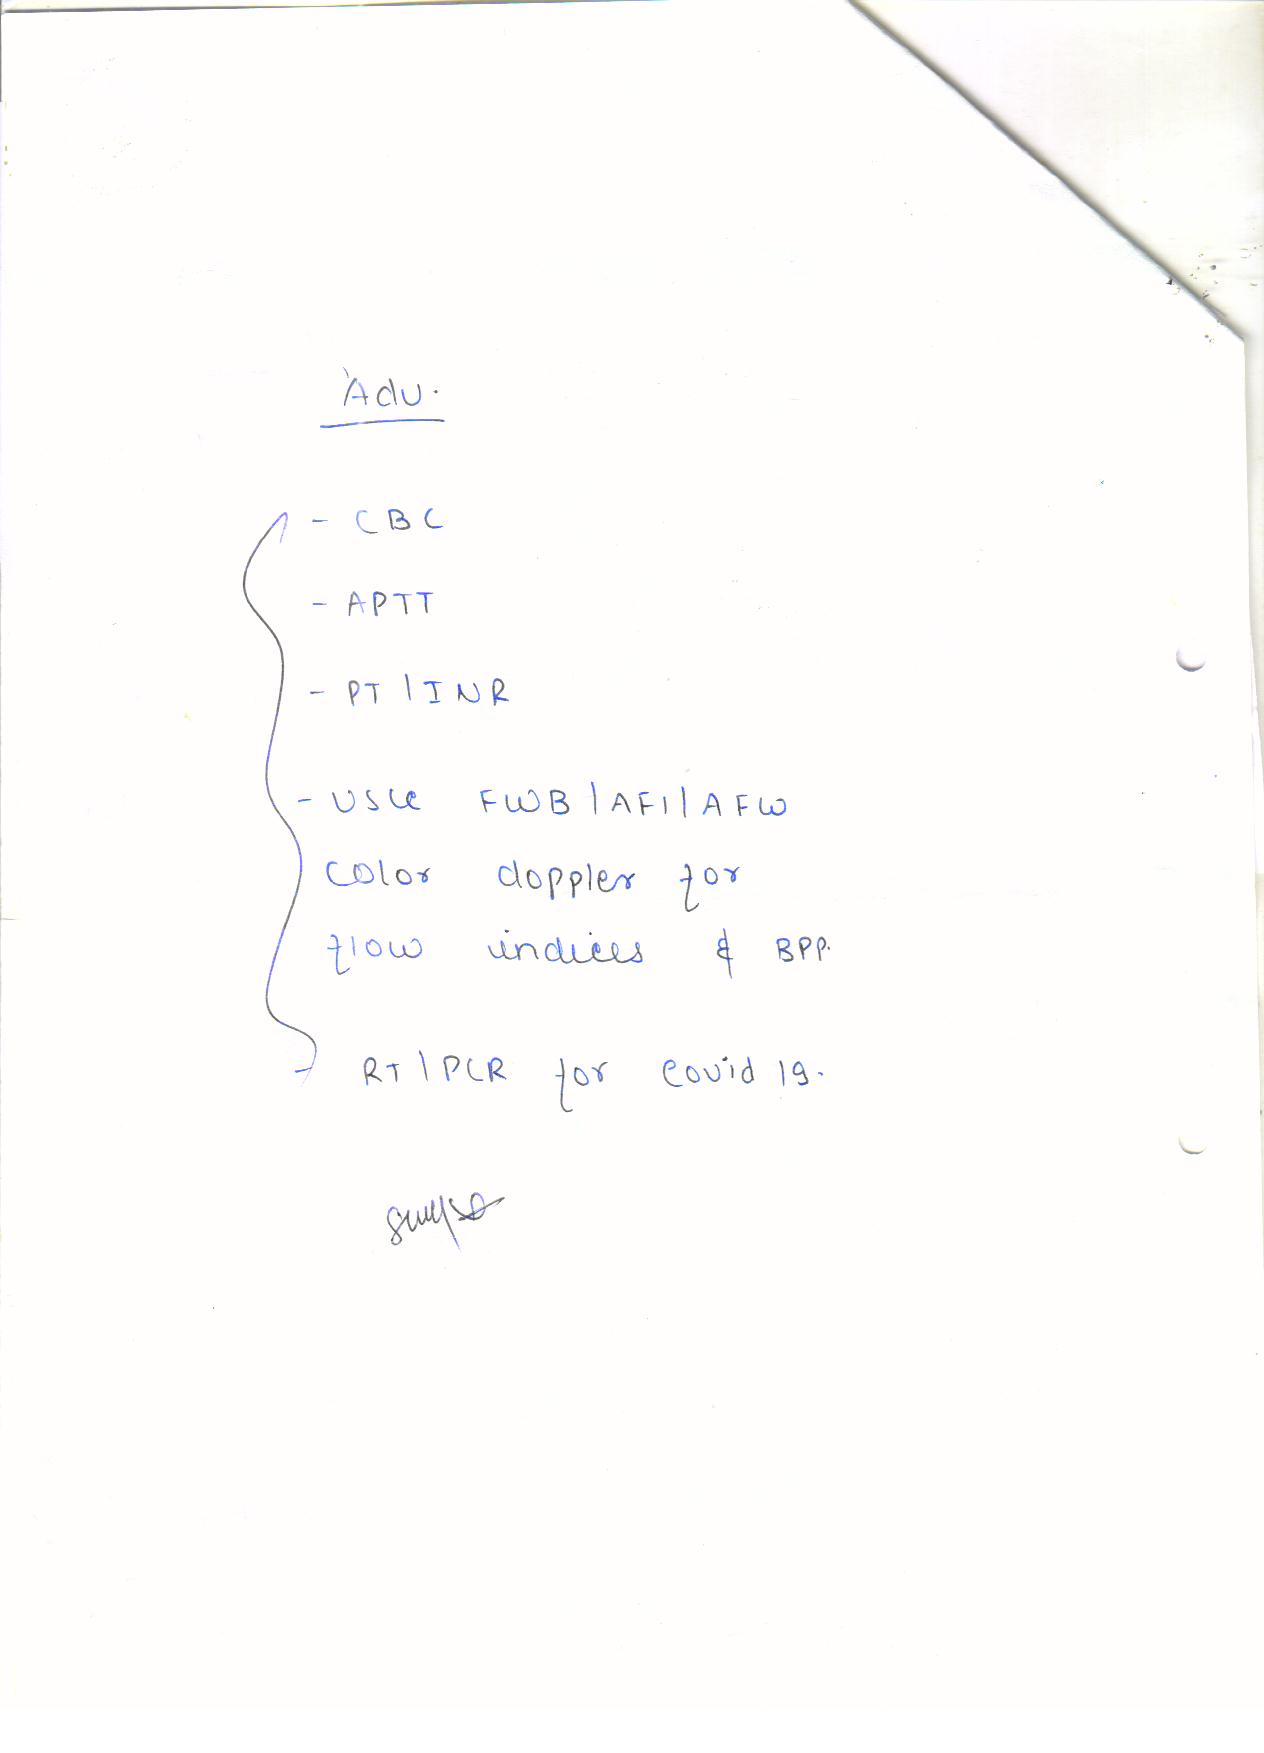 Adv.
- CBC
- APTT
- PT | INR
- USG FWB | AFI | AFW
Color doppler for
flow indices & BPP.
RT | PCR for Covid 19.